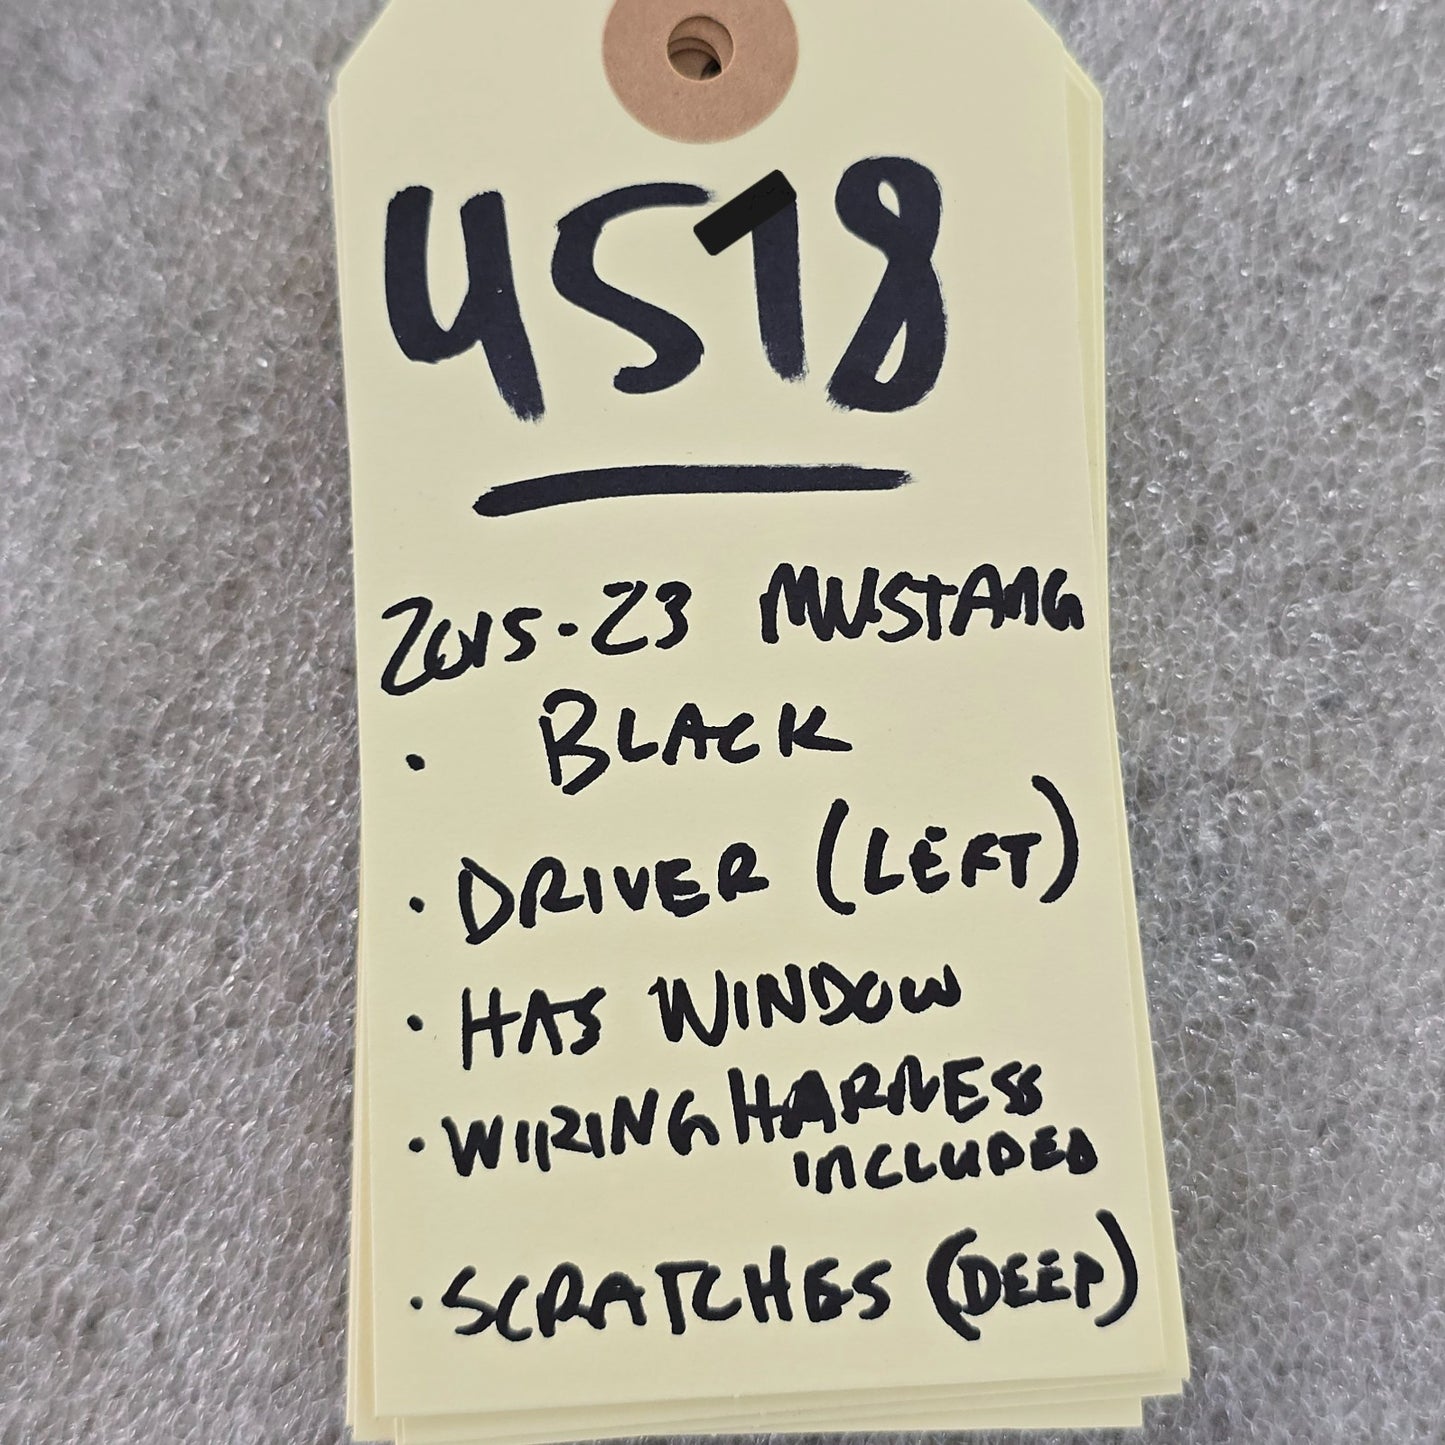 4518
2015-23 MUSTANG
• BLACK
• DRIVER (LEFT)
• HAS WINDOW
• WIRING HARNESS
INCLUDED
• SCRATCHES (DEEP)